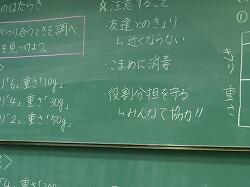 のはたらき
つり合うときを調べ
を見つけよう。
り「6」、重さ「10g」
り「4」、重さ「30g」
り「2」、重さ「50g」
注意すること
・友達とのきょり
↳近くならない
・こまめに消毒
・役割分担を守る
↳みんなで協力!!
①
きょり
重さ
「4」、重さ「30g